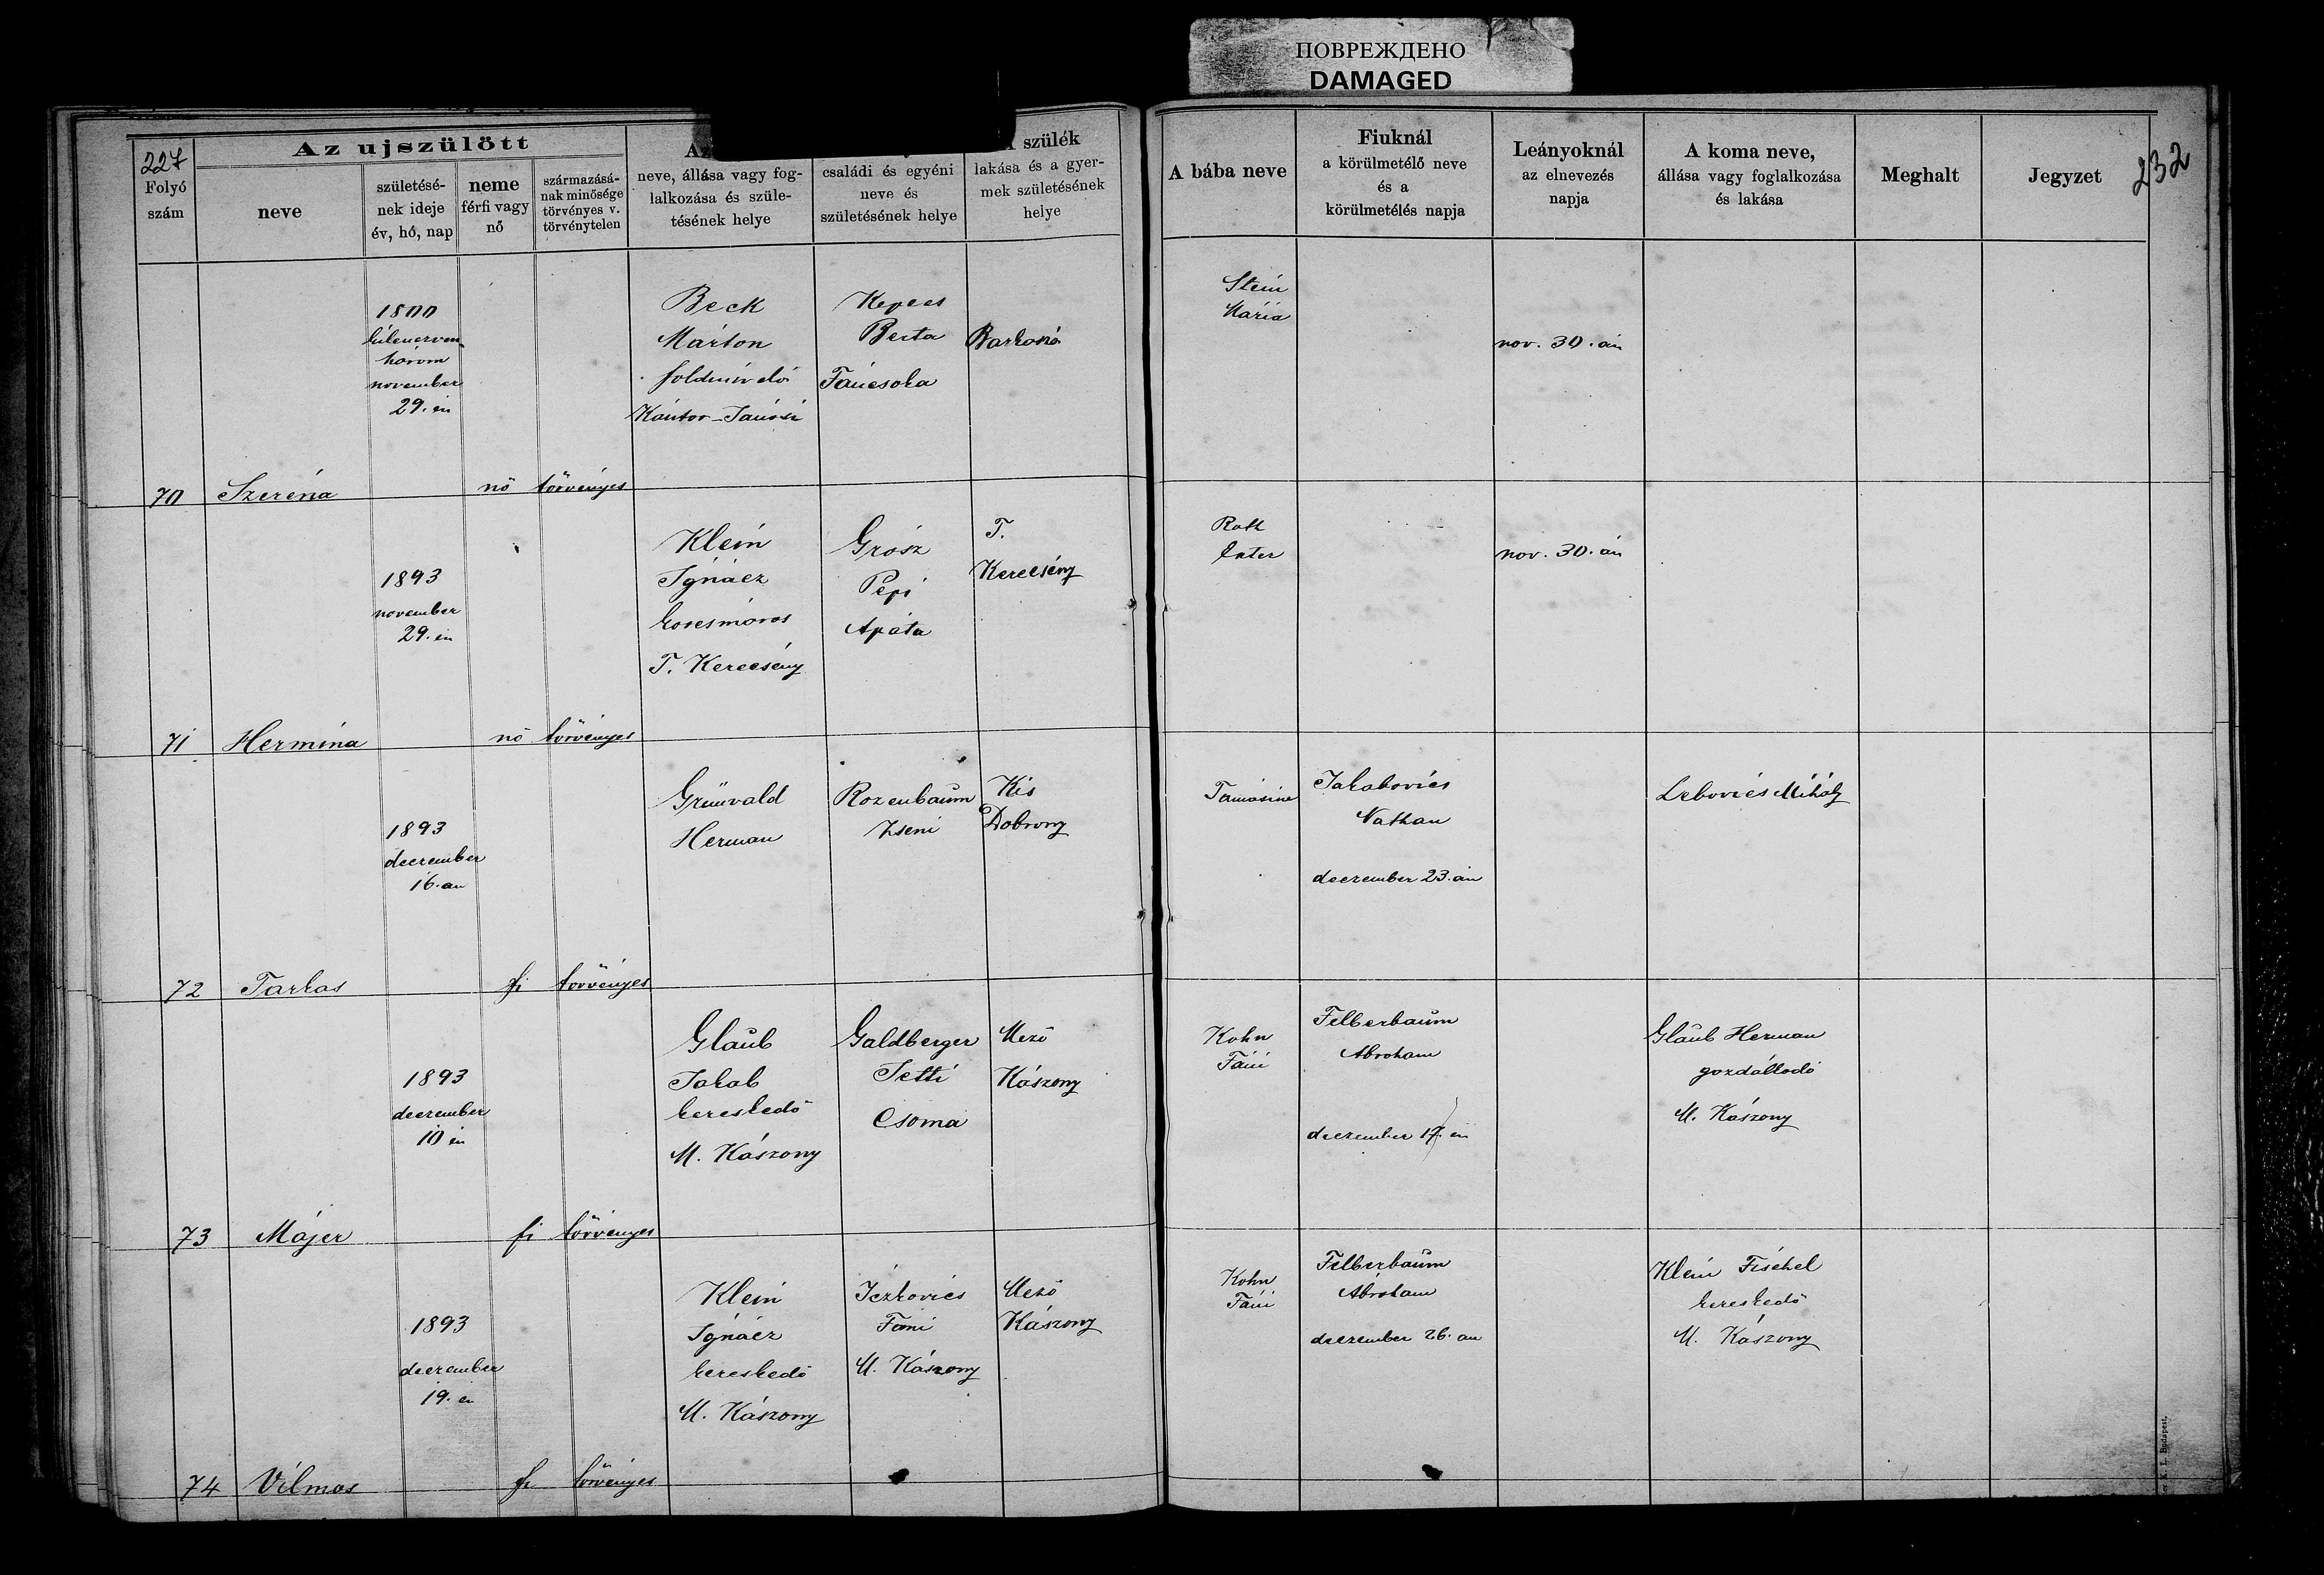 ПОВРЕЖДЕНО
DAMAGED
227
Folyó
szám
Az ujszülött
neve
születésé-
nek ideje
év, hó, nap
neme
férfi vagy
nő
származásá-
nak minősége
törvényes v.
törvénytelen
Az
neve, állása vagy fog-
lalkozása és szüle-
tésének helye
családi és egyéni
neve és
születésének helye
szülék
lakása és a gyer-
mek születésének
helye
A bába neve
Fiuknál
a körülmetélő neve
és a
körülmetélés napja
Leányoknál
az elnevezés
napja
A koma neve,
állása vagy foglalkozása
és lakása
Meghalt
Jegyzet
232
70
Szeréna
1800
három
november
29. én
nő
törvényes
Beck
Márton
földmivelő
Kántor-Jánosi
Kepecs
Berta
Fáncsoka
Barkaszó
Stein
Mária
nov. 30. án
71
Hermina
1893
november
29. én
nő
törvényes
Klein
Ignácz
kocsmáros
T. Kerecsény
Grósz
Pepi
Apáta
T.
Kerecsény
Roth
Eszter
nov. 30. án
72
Farkas
1893
deczember
16. án
fi
törvényes
Grünvald
Herman
Rozenbaum
Zseni
Kis
Dobrony
Tamásiné
Jakabovics
Nathan
deczember 23. án
Lebovics Mihály
73
Májer
1893
deczember
10 én
fi
törvényes
Glaub
Jakab
kereskedő
M. Kászony
Galdberger
Jetti
Csoma
Mező
Kászony
Kohn
Fáni
Felberbaum
Abraham
deczember 17. én
Glaub Herman
gazdálkodó
M. Kászony
74
Vilmos
1893
deczember
19. én
fi
törvényes
Klein
Ignácz
kereskedő
M. Kászony
Iczkovics
Fáni
M. Kászony
Mező
Kászony
Kohn
Fáni
Felberbaum
Ábrahám
deczember 26. án
Klein Fischel
kereskedő
M. Kászony
K. L. Budapest.